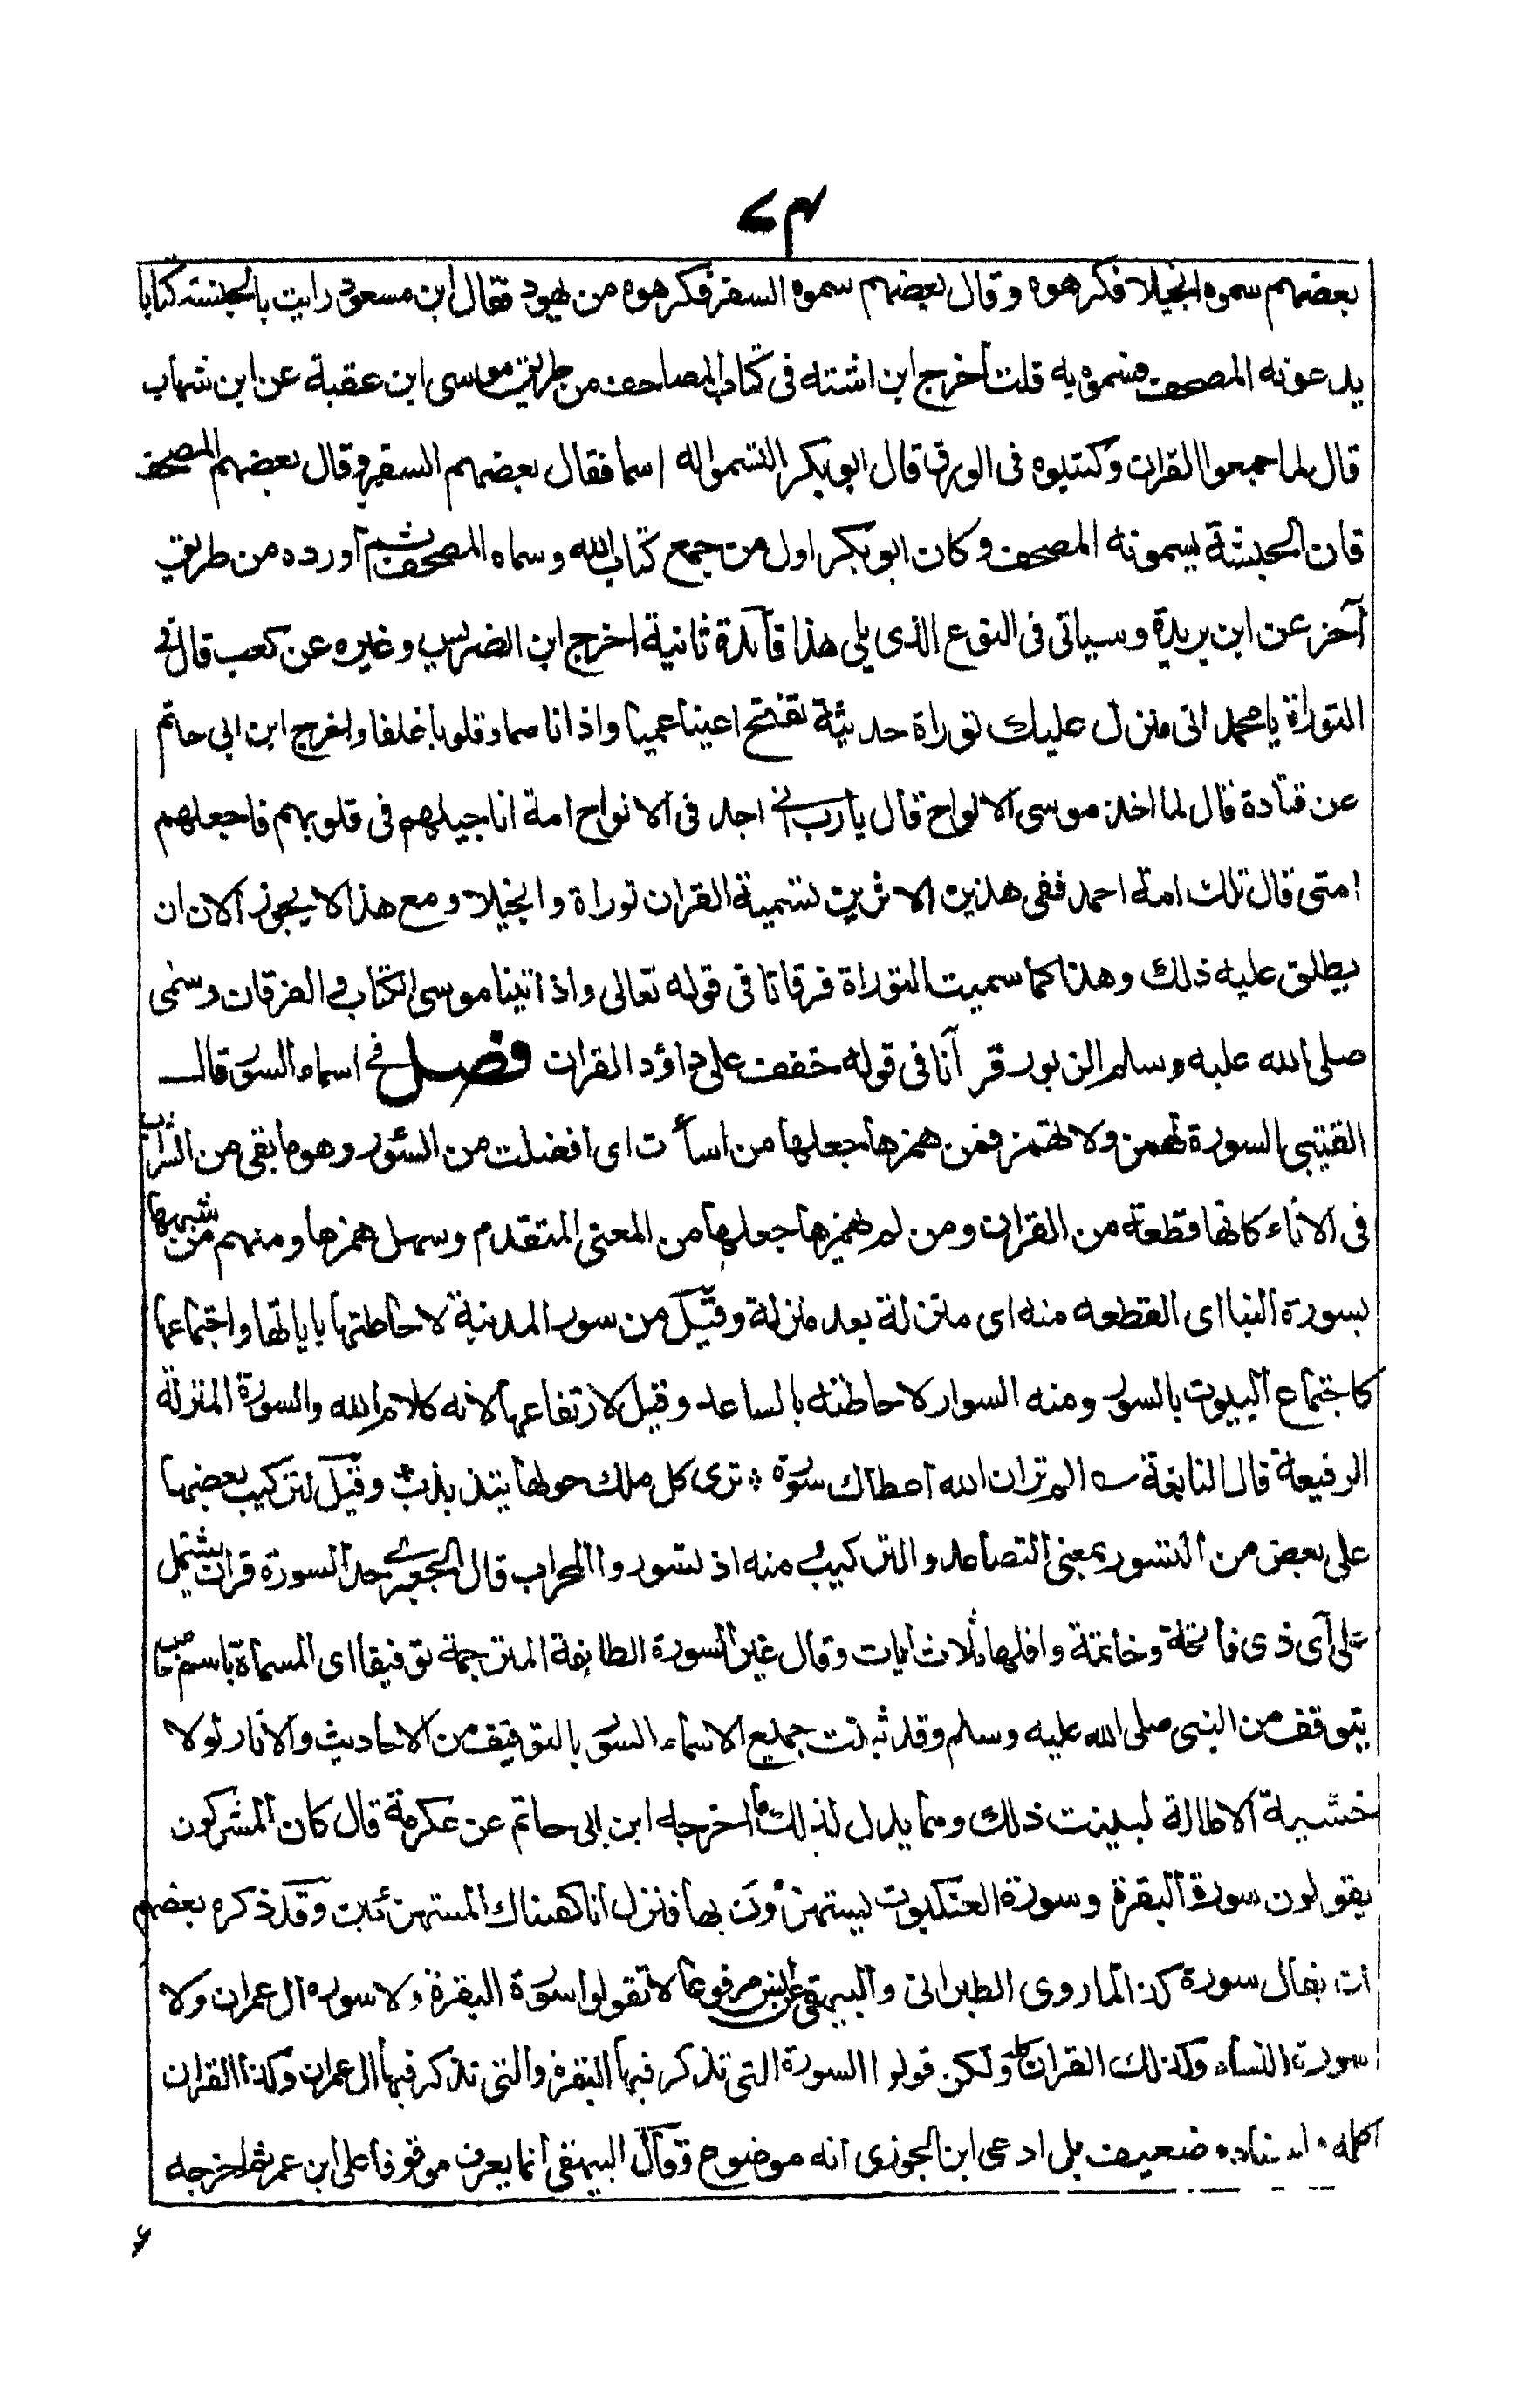 بعضهم سموه انجيلا فكرهوه وقال بعضهم سموه السفر فكرهوه من يهود فقال ابن مسعود رايت بالحبشته كتابا
يدعونه المصحف فسموه به قلت أخرج ابن اشته فى كتاب المصاحف من طريق موسى ابن عقبة عن ابن شهاب
قال لما جمعوا القران وكتبوه فى الورق قال ابو بكر التمسوا له اسما فقال بعضهم السفر وقال بعضهم المصحف
فان الحبشة يسمونه المصحف وكان ابو بكر اول من جمع كتاب الله وسماه المصحف ثم أورده من طريق
آخر عن ابن بريدة وسياتى فى النوع الذى يلى هذا فائدة ثانية اخرج ابن الضريس وغيره عن كعب قال فى
التوراة يا محمد انى منزل عليك توراة حديثة تفتح اعينا عميا واذانا صما وقلوبا غلفا واخرج ابن ابي حاتم
عن قتادة قال لما اخذ موسى الالواح قال يا رب انى اجد فى الالواح امة اناجيلهم فى قلوبهم فاجعلهم
امتى قال تلك امة احمد ففى هذين الاثرين تسمية القران توراة وانجيلا ومع هذا لا يجوز الان ان
يطلق عليه ذلك وهذا كما سميت التوراة فرقانا فى قوله تعالى واذ اتينا موسى الكتاب والفرقان وسمى
صلى الله عليه وسلم الزبور قرآنا فى قوله خفف على داؤد القران فصل فى اسماء السور قال
القتيبى السورة تهمز ولا تهمز فمن همزها جعلها من اسأرت اى افضلت من السؤر وهو ما بقى من الشراب
فى الاناء كانها قطعة من القران ومن لم يهمزها جعلها من المعنى المتقدم وسهل همزها ومنهم من شبهها
بسورة البنا اى القطعه منه اى منزلة بعد منزلة وقيل من سور المدينة لاحاطتها باياتها واجتماعها
كاجتماع البيوت بالسور ومنه السوار لاحاطته بالساعد وقيل لارتفاعها لانه كلام الله والسورة المنزلة
الرفيعة قال النابغة ؎ الم تر ان الله اعطاك سورة ÷ ترى كل ملك حولها يتذبذب وقيل لتركيب بعضها
على بعض من التسور بمعنى التصاعد والتركيب منه اذ تسوروا المحراب قال الجعبرى حد السورة قران يشتمل
على آى ذى فاتحة وخاتمة واقلها ثلاث ايات وقال غيره السورة الطائفة المترجمة توقيفا اى المسماة باسم خاص
بتوقف من النبى صلى الله عليه وسلم وقد ثبتت جميع الاسماء السور بالتوقيف من الاحاديث والاثار لولا
خشية الاطالة لبينت ذلك ومما يدل لذلك ما اخرجه ابن ابى حاتم عن عكرمة قال كان المشركون
يقولون سورة البقرة وسورة العنكبوت يستهزأون بها فنزل انا كفيناك المستهزئين وقد ذكره بعضهم
ان يقال سورة كذا لما روى الطبرانى والبيهقى عن انس مرفوعا لا تقولوا سورة البقرة ولا سوره ال عمران ولا
سورة النساء وكذلك القران كله ولكن قولوا السورة التى تذكر فيها البقرة والتى تذكر فيها ال عمران وكذا القران
كله واسناده ضعيف بل ادعى ابن الجوزى انه موضوع وقال البيهقى انما يعرف موقوفا على ابن عمر ثم اخرجه